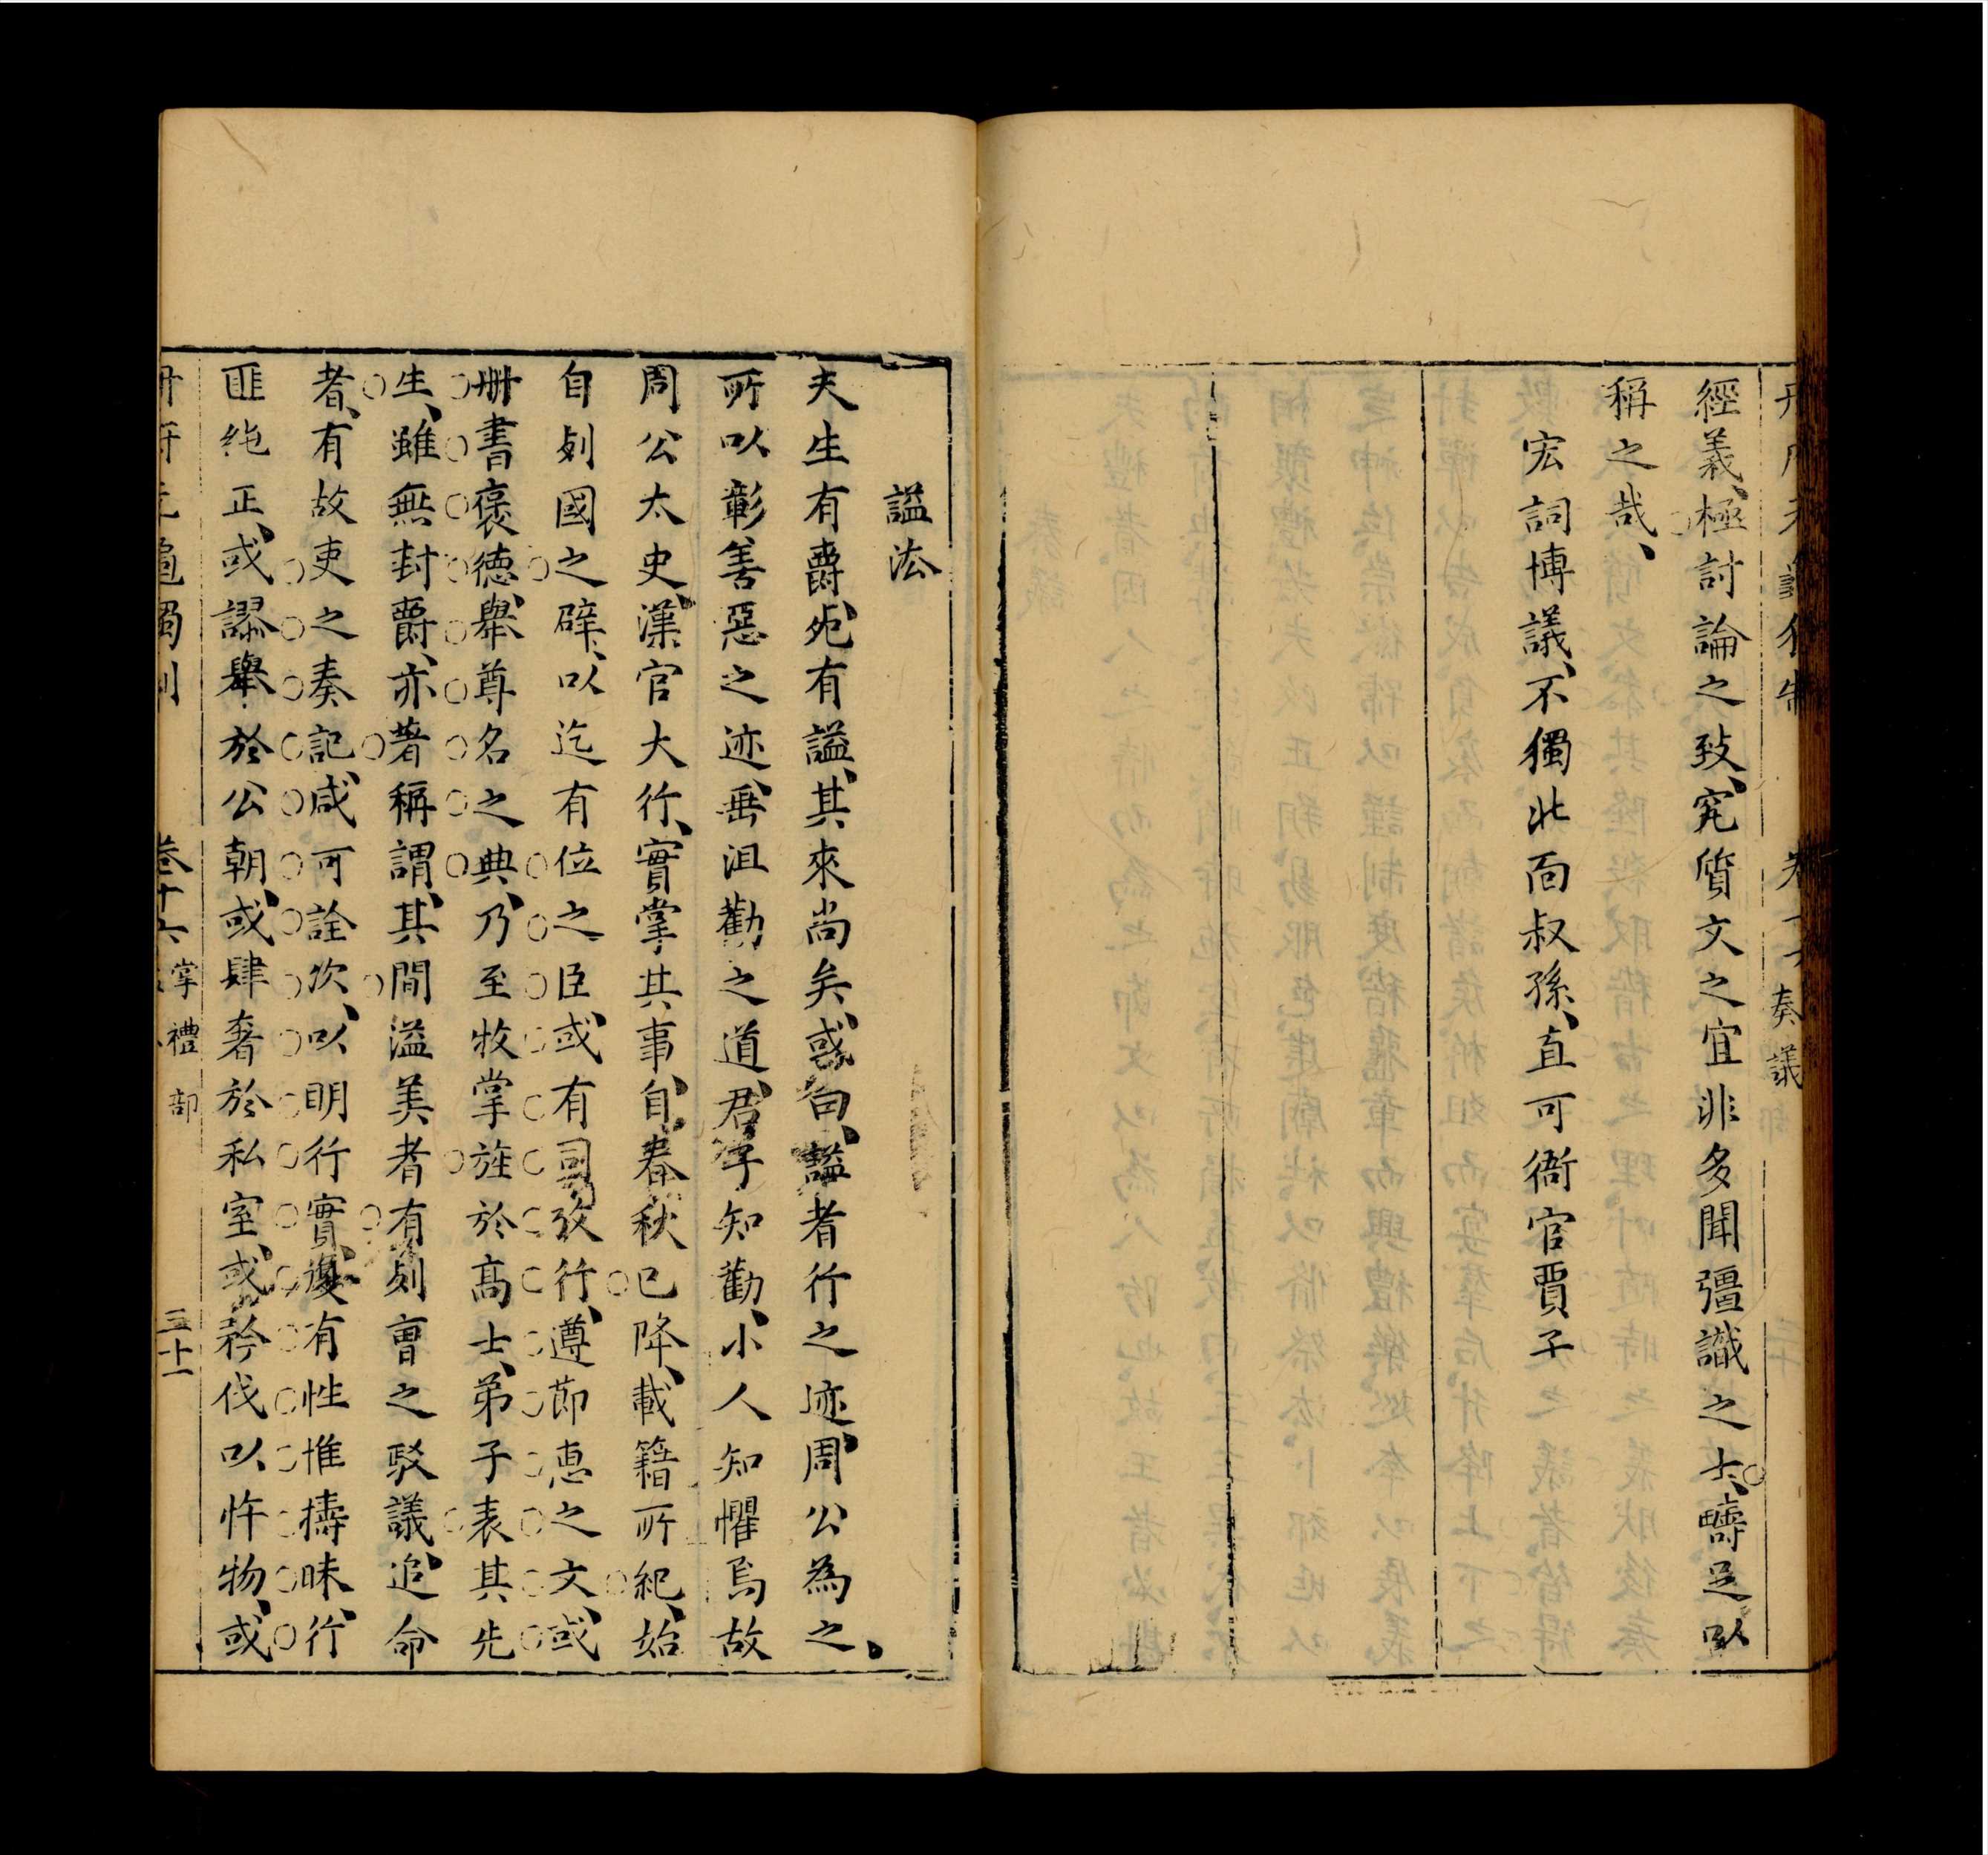 奏議
經義、極討論之致、究質文之宜非多聞彊識之士、疇足以
稱之哉、
宏詞博議、不獨北面叔孫、直可衙官賈子
謚法
夫生有爵、死有謚、其來尚矣、或曰、謚者行之迹、周公為之、
所以彰善惡之迹、垂沮勸之道、君子知勸、小人知懼焉故
周公太史、漢官大行、實掌其事、自春秋已降、載籍所紀、始
自列國之辟、以迄有位之臣、或有司攷行、遵節惠之文、或
冊書褒德、舉尊名之典、乃至牧掌旌於高士、弟子表其先
生、雖無封爵、亦著稱謂、其間溢美者有列曹之駁議、追命
者、有故吏之奏記、咸可詮次、以明行實、復有性惟檮昧、行
匪純正、或謬舉於公朝、或肆奢於私室、或矜伐以忤物、或
卷十六 掌禮部 三十一